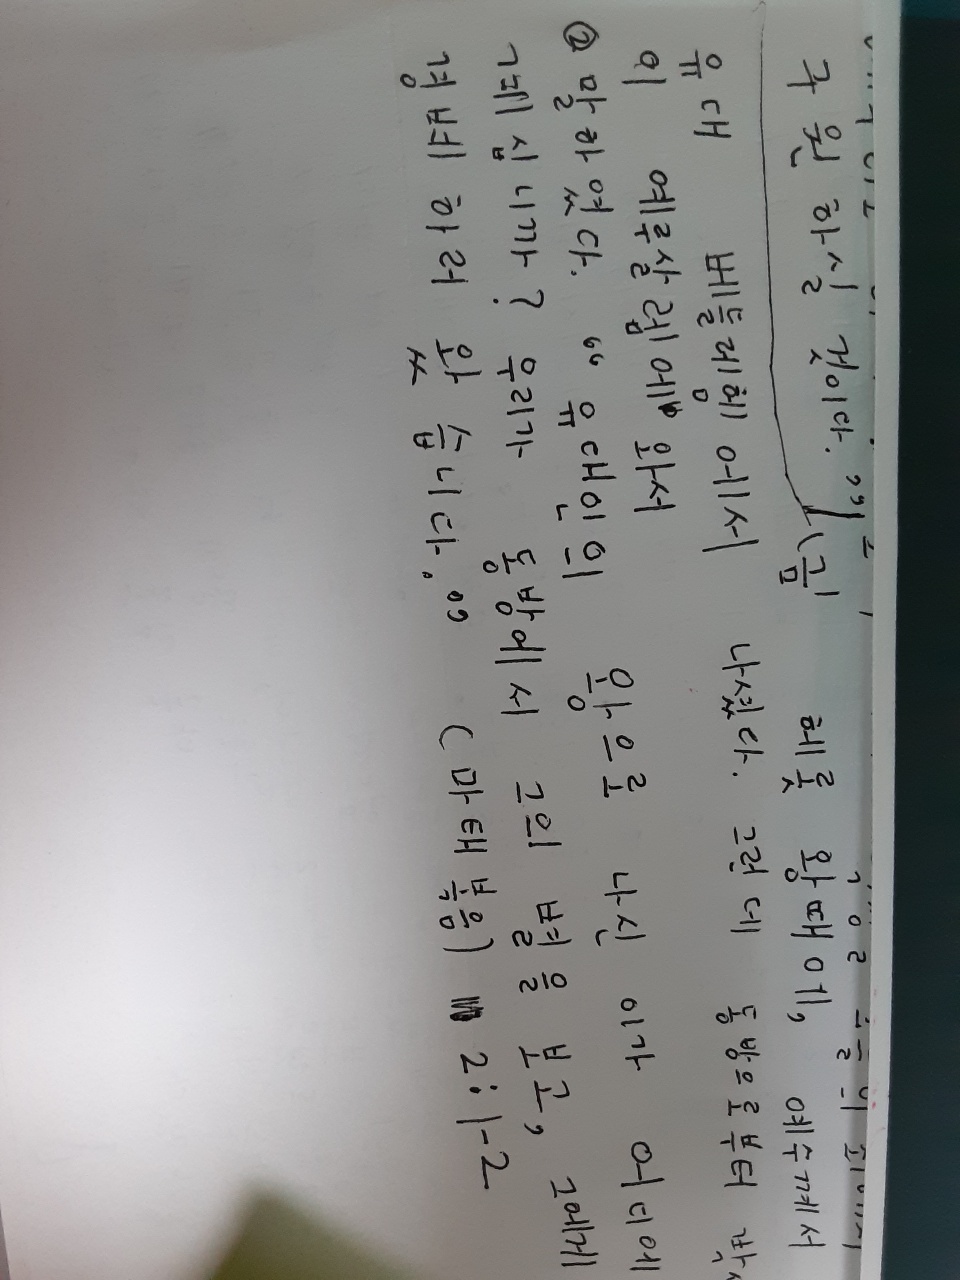 구원하실 것이다."
(금) 헤롯 왕때에, 예수께서
유대 베들레헴에서 나셨다. 그런데 동방으로부터
이 예루살렘에 와서
② 말하였다. "유대인의 왕으로 나신 이가 어디에
계십니까? 우리가 동방에서 그의 별을 보고, 그에게
경배하러 왔습니다." (마태복음) 2:1-2